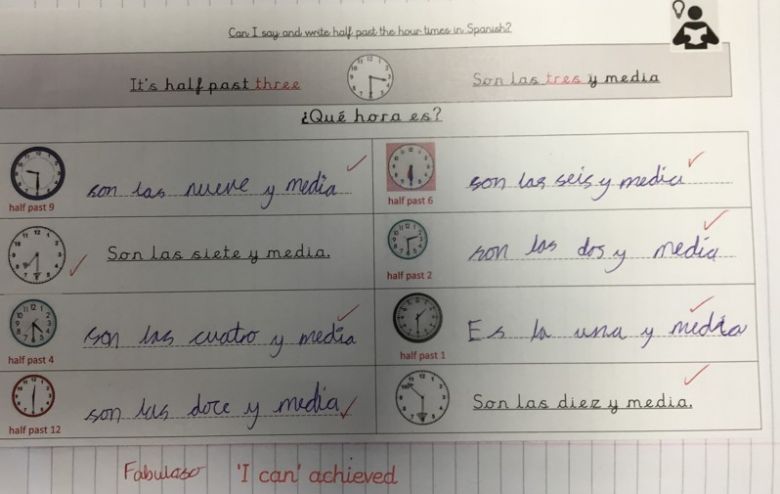 Can I say and write half past the hour times in Spanish?
It's half past three
Son las tres y media
¿Qué hora es?
son las nueve y media
half past 9
son las seis y media
half past 6
Son las siete y media.
son las dos y media
half past 2
son las cuatro y media
half past 4
Es la una y media
half past 1
son las doce y media
half past 12
Son las diez y media.
Fabulaso 'I can' achieved